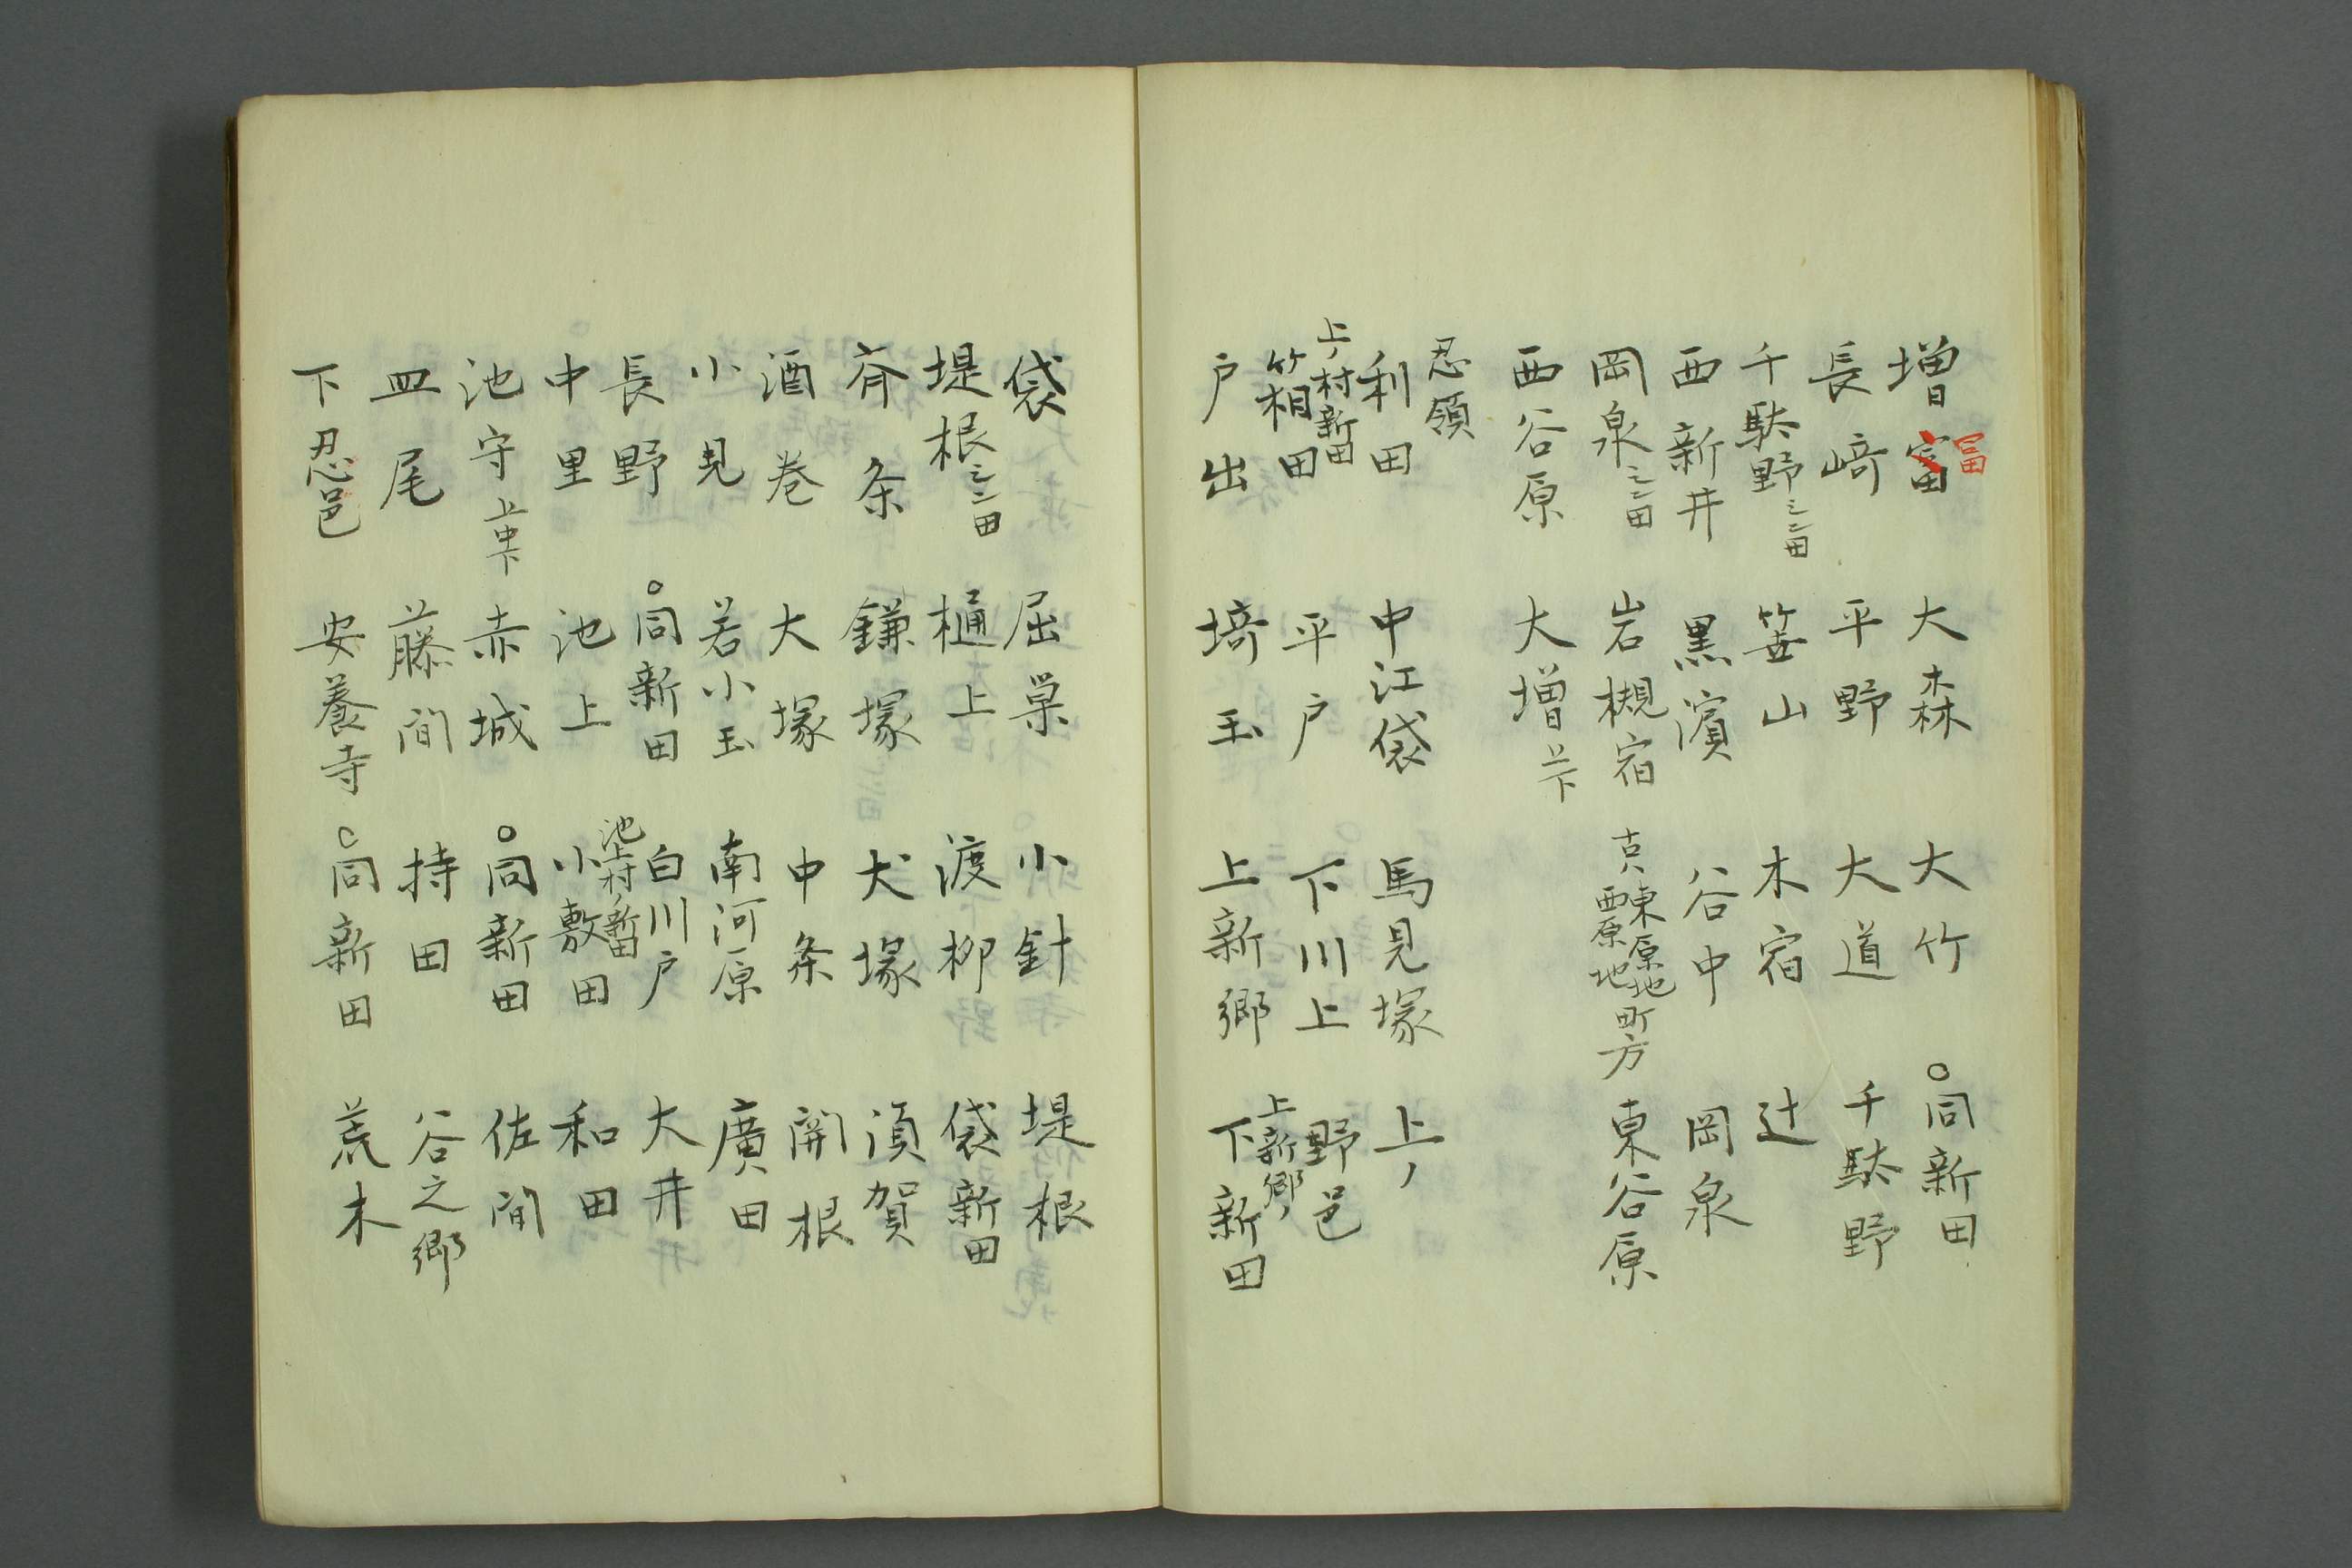 増富 大森 大竹 〇同新田
富
長﨑 平野 大道 千駄野
千駄野シン田 笹山 木宿 辻
西新井 黒濱 谷中 岡泉
岡泉シン田 岩槻宿 東原地 西原地 町方 東谷原
西谷原 大増上下
忍領
利田 中江袋 馬見塚 上ノ
上ノ村新田
箱田 平戸 下川上 野邑
上新郷ノ
戸出 埼玉 上新郷 下新田
袋 屈巣 小針 堤根
堤根シン田 樋上 渡柳 袋新田
斉条 鎌塚 犬塚 須賀
酒巻 大塚 中条 開根
小見 若小玉 南河原 廣田
長野 〇同新田 白川戸 大井
池上村ノ新田
中里 池上 小敷田 和田
池守上中下 赤城 〇同新田 佐間
皿尾 藤間 持田 谷之郷
下忍邑 安養寺 〇同新田 荒木